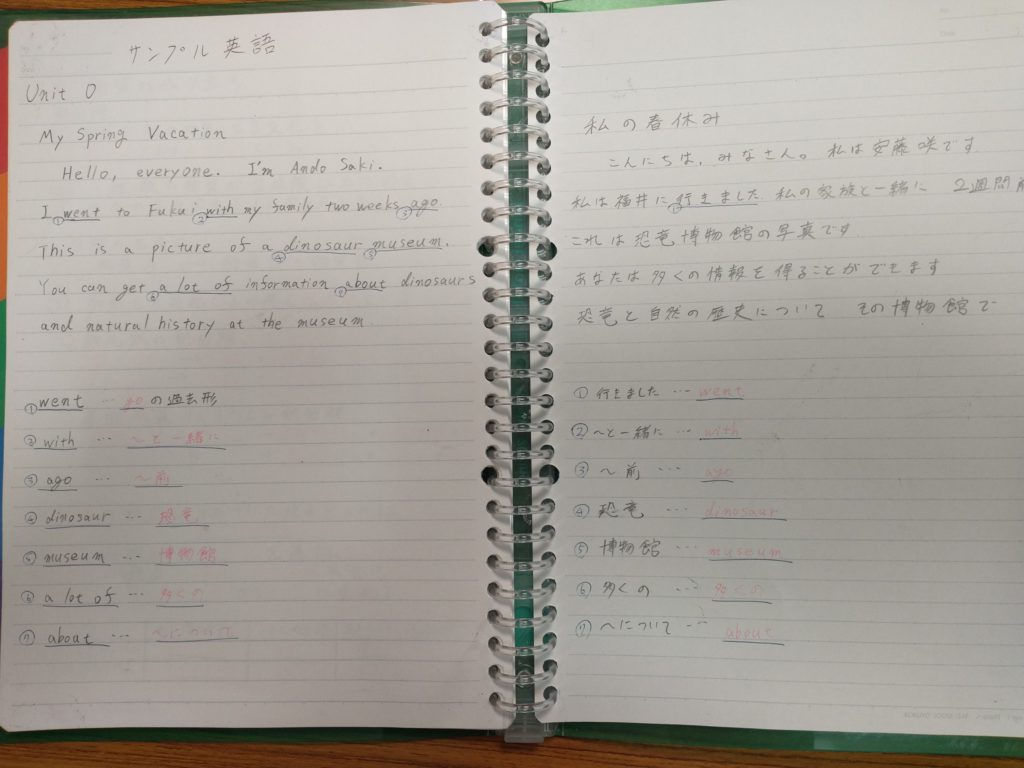 サンプル英語
Unit 0
My Spring Vacation
Hello, everyone. I'm Ando Saki.
I ①went to Fukui ②with my family two weeks ③ago.
This is a picture of a ④dinosaur ⑤museum.
You can get ⑥a lot of information ⑦about dinosaurs
and natural history at the museum.
①went … goの過去形
②with … ～と一緒に
③ago … ～前
④dinosaur … 恐竜
⑤museum … 博物館
⑥a lot of … 多くの
⑦about … ～について
私の春休み
こんにちは, みなさん。私は安藤咲です
私は福井に①行きました. 私の家族と一緒に 2週間前
これは恐竜博物館の写真です.
あなたは多くの情報を得ることができます
恐竜と自然の歴史について その博物館で
①行きました … went
②～と一緒に … with
③～前 … ago
④恐竜 … dinosaur
⑤博物館 … museum
⑥多くの … 多くの
⑦～について … about